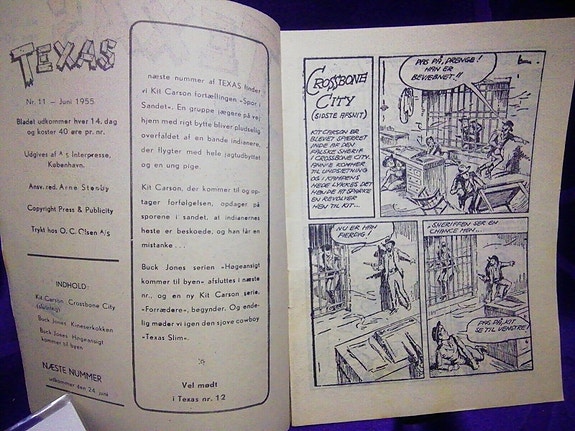 TEXAS
Nr. 11 — Juni 1955.
Bladet udkommer hver 14. dag
og koster 40 øre pr. nr.
Udgives af A/s Interpresse,
København.
Ansv. red. Arne Stenby
Copyright Press & Publicity
Trykt hos O. C. Olsen A/s
INDHOLD:
Kit Carson: Crossbone City
(slutning)
Buck Jones: Kineserkokken
Buck Jones: Høgeansigt
kommer til byen
NÆSTE NUMMER
udkommer den 24. juni
næste nummer af TEXAS finder
vi Kit Carson fortællingen »Spor i
Sandet«. En gruppe jægere på vej
hjem med rigt bytte bliver pludselig
overfaldet af en bande indianere,
der flygter med hele jagtudbyttet
og en ung pige.
Kit Carson, der kommer til og op-
tager forfølgelsen, opdager på
sporene i sandet, at indianernes
heste er beskoede, og han får en
mistanke . . .
Buck Jones serien »Høgeansigt
kommer til byen« afsluttes i næste
nr., og en ny Kit Carson serie,
»Forrædere«, begynder. Og ende-
lig møder vi igen den sjove cowboy
»Texas Slim«.
Vel mødt
i Texas nr. 12
CROSSBONE
CITY
(SIDSTE AFSNIT)
KIT CARSON ER
BLEVET SPÆRRET
INDE AF DEN
FALSKE SHERIF
I CROSSBONE CITY.
KOMMER
TIL UNDSÆTNING
OG I KAMPENS
HEDE LYKKES DET
HAM AT SPARKE
EN REVOLVER
HEN TIL KIT...
PAS PÅ, DRENGE!
HAN ER
BEVÆBNET!!
NU ER HAN
FÆRDIG!
SHERIFFEN SER EN
CHANCE MEN...
PAS PÅ, KIT
SE TIL VENSTRE!